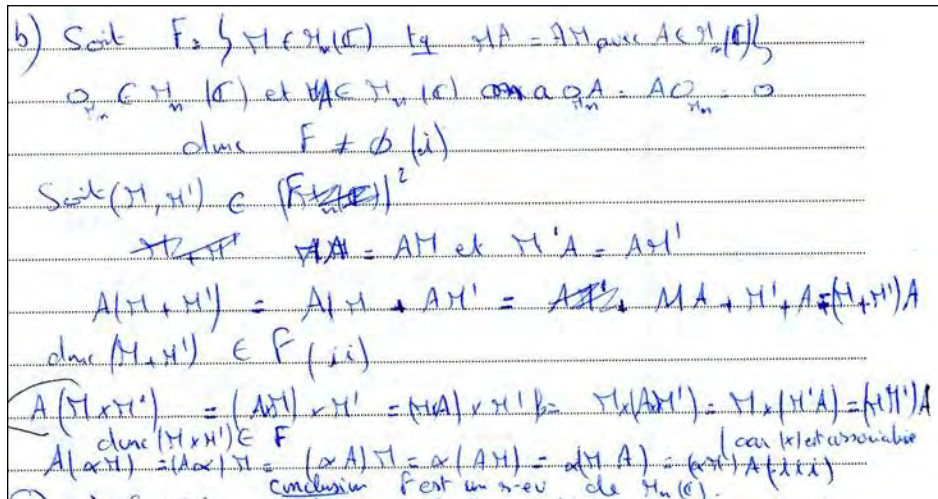 b) Soit F = { M ∈ M_n(ℂ) tq MA = AM avec A ∈ M_n(ℂ) }
O_{M_n} ∈ M_n(ℂ) et ∀A ∈ M_n(ℂ) on a O_{M_n}A = AO_{M_n} = 0
donc F ≠ ∅ (i)
Soit (M, M') ∈ (F)²
MA = AM et M'A = AM'
A(M + M') = AM + AM' = MA + M'A = (M+M')A
donc (M+M') ∈ F (ii)
A(M×M') = (AM) × M' = (MA) × M' = M×(AM') = M×(M'A) = (MM')A
donc (M×M') ∈ F (car (×) est associative
A(αM) = (Aα)M = (αA)M = α(AM) = α(MA) = (αM)A (iii)
conclusion F est un s-ev de M_n(ℂ).